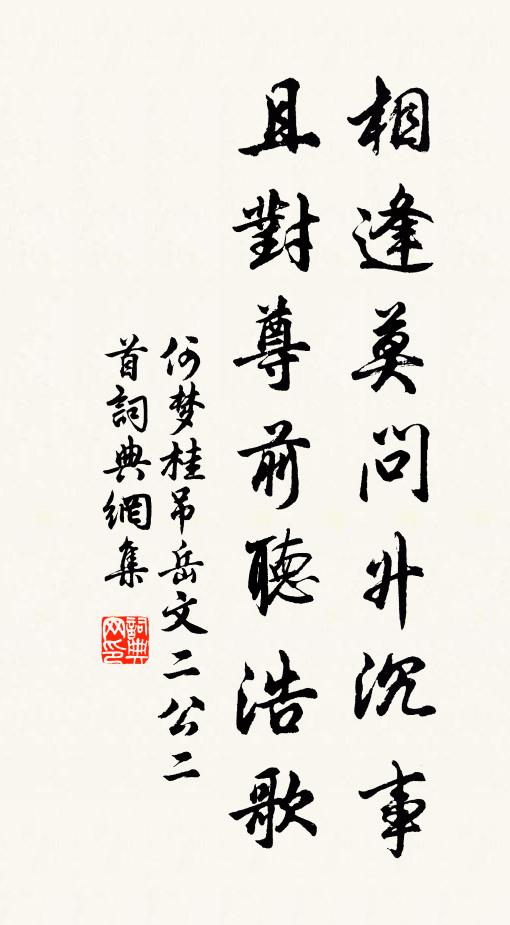 相逢莫問升沉事
且對尊前聽浩歌
何梦桂吊岳文二公二
首詞典網集
詞典网印